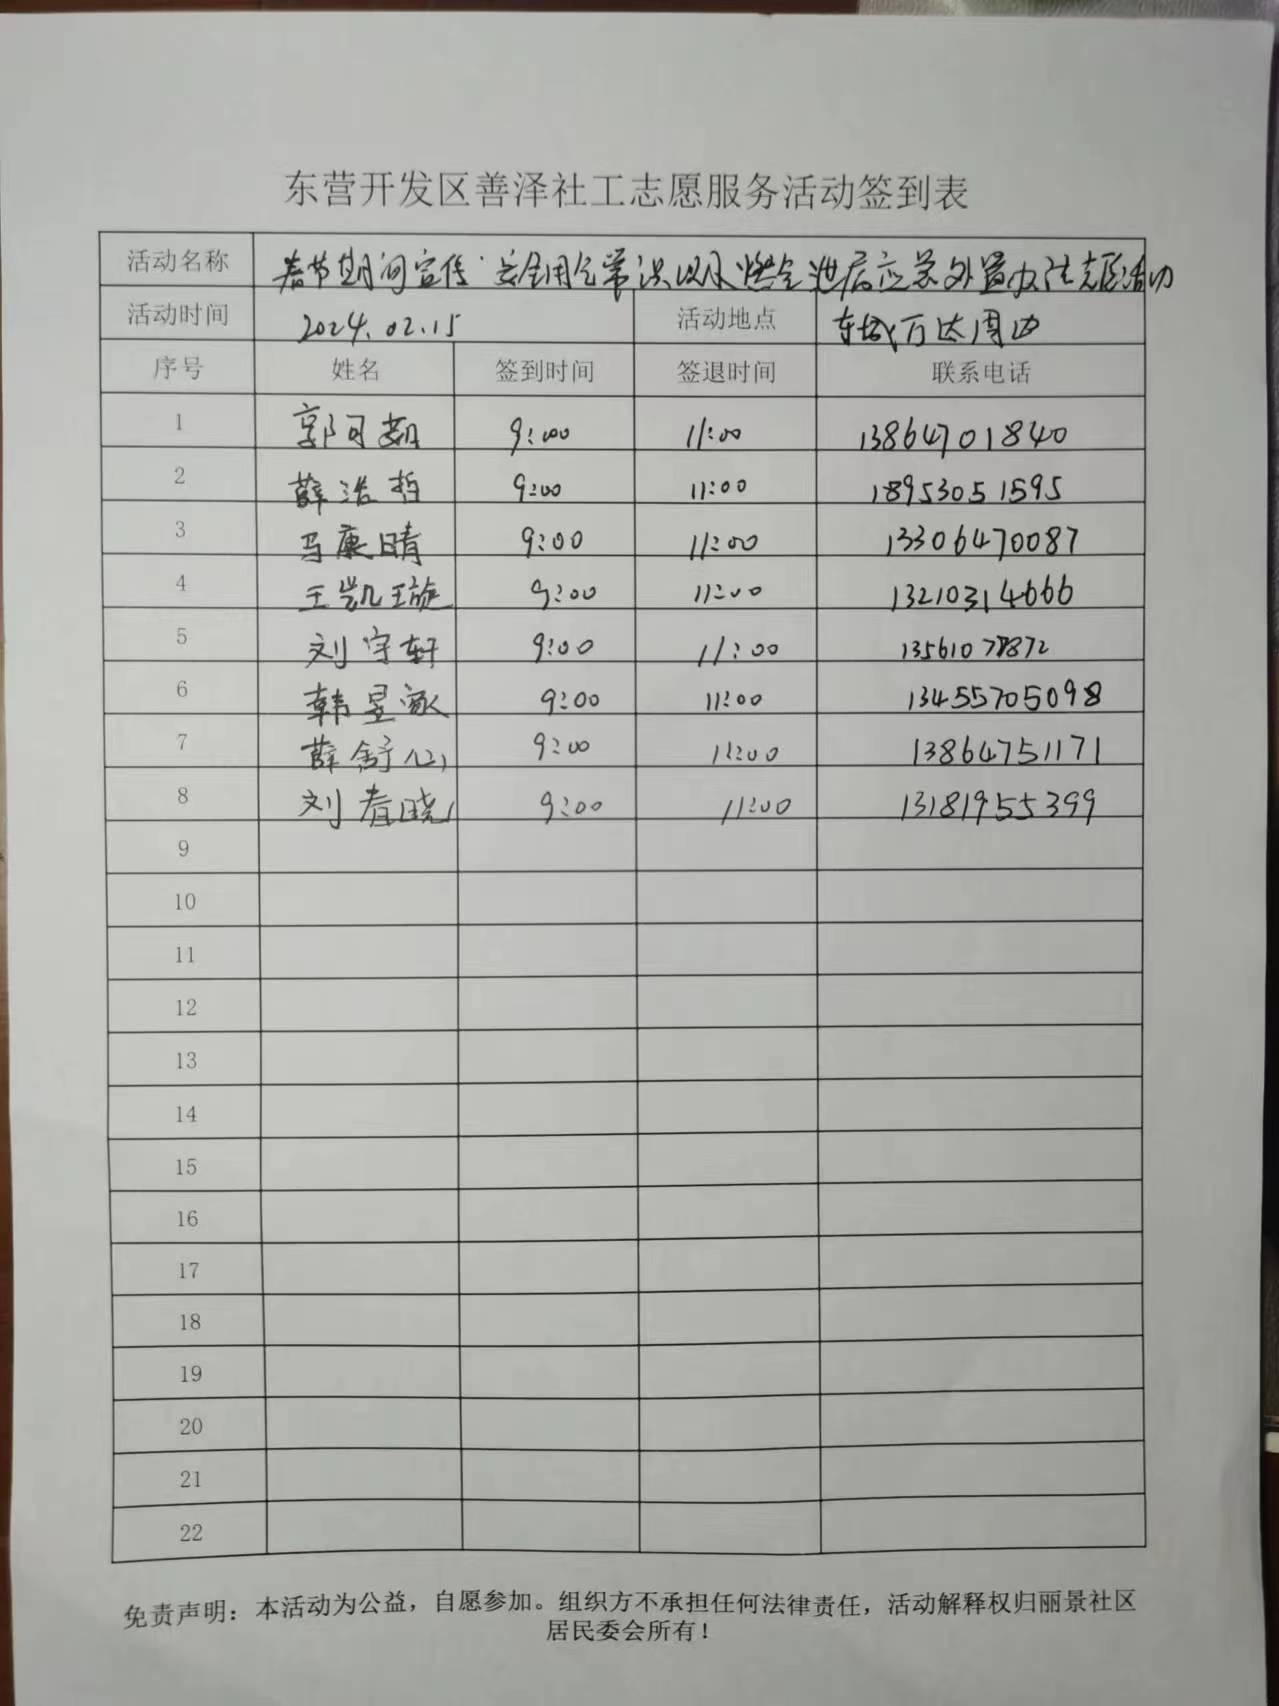 东营开发区善泽社工志愿服务活动签到表
活动名称 春节期间宣传"安全用气常识以及燃气泄漏应急处置办法志愿活动
活动时间 2024.02.15 活动地点 东城万达周边
序号 姓名 签到时间 签退时间 联系电话
1 郭可 9:00 11:00 13864701840
2 薛浩哲 9:00 11:00 18953051595
3 马康晴 9:00 11:00 13306470087
4 王凯璇 9:00 11:00 13210314666
5 刘宇轩 9:00 11:00 13561077872
6 韩昱 9:00 11:00 13455705098
7 薛舒心 9:00 11:00 13864751171
8 刘春晓 9:00 11:00 13181955399
9
10
11
12
13
14
15
16
17
18
19
20
21
22
免责声明：本活动为公益，自愿参加。组织方不承担任何法律责任，活动解释权归丽景社区
居民委会所有！